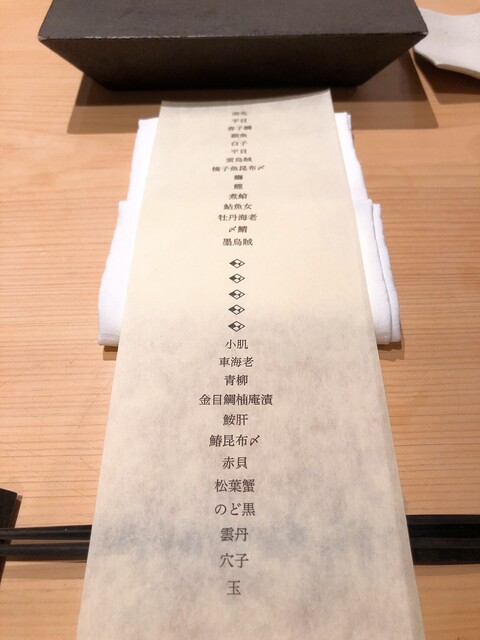 平目
春子鯛
銀魚
白子
平目
蛍烏賊
梶子魚昆布〆
鰤
鰹
煮鮑
鮎魚女
牡丹海老
〆鯖
墨烏賊
小肌
車海老
青柳
金目鯛柚庵漬
鮟肝
鰆昆布〆
赤貝
松葉蟹
のど黒
雲丹
穴子
玉